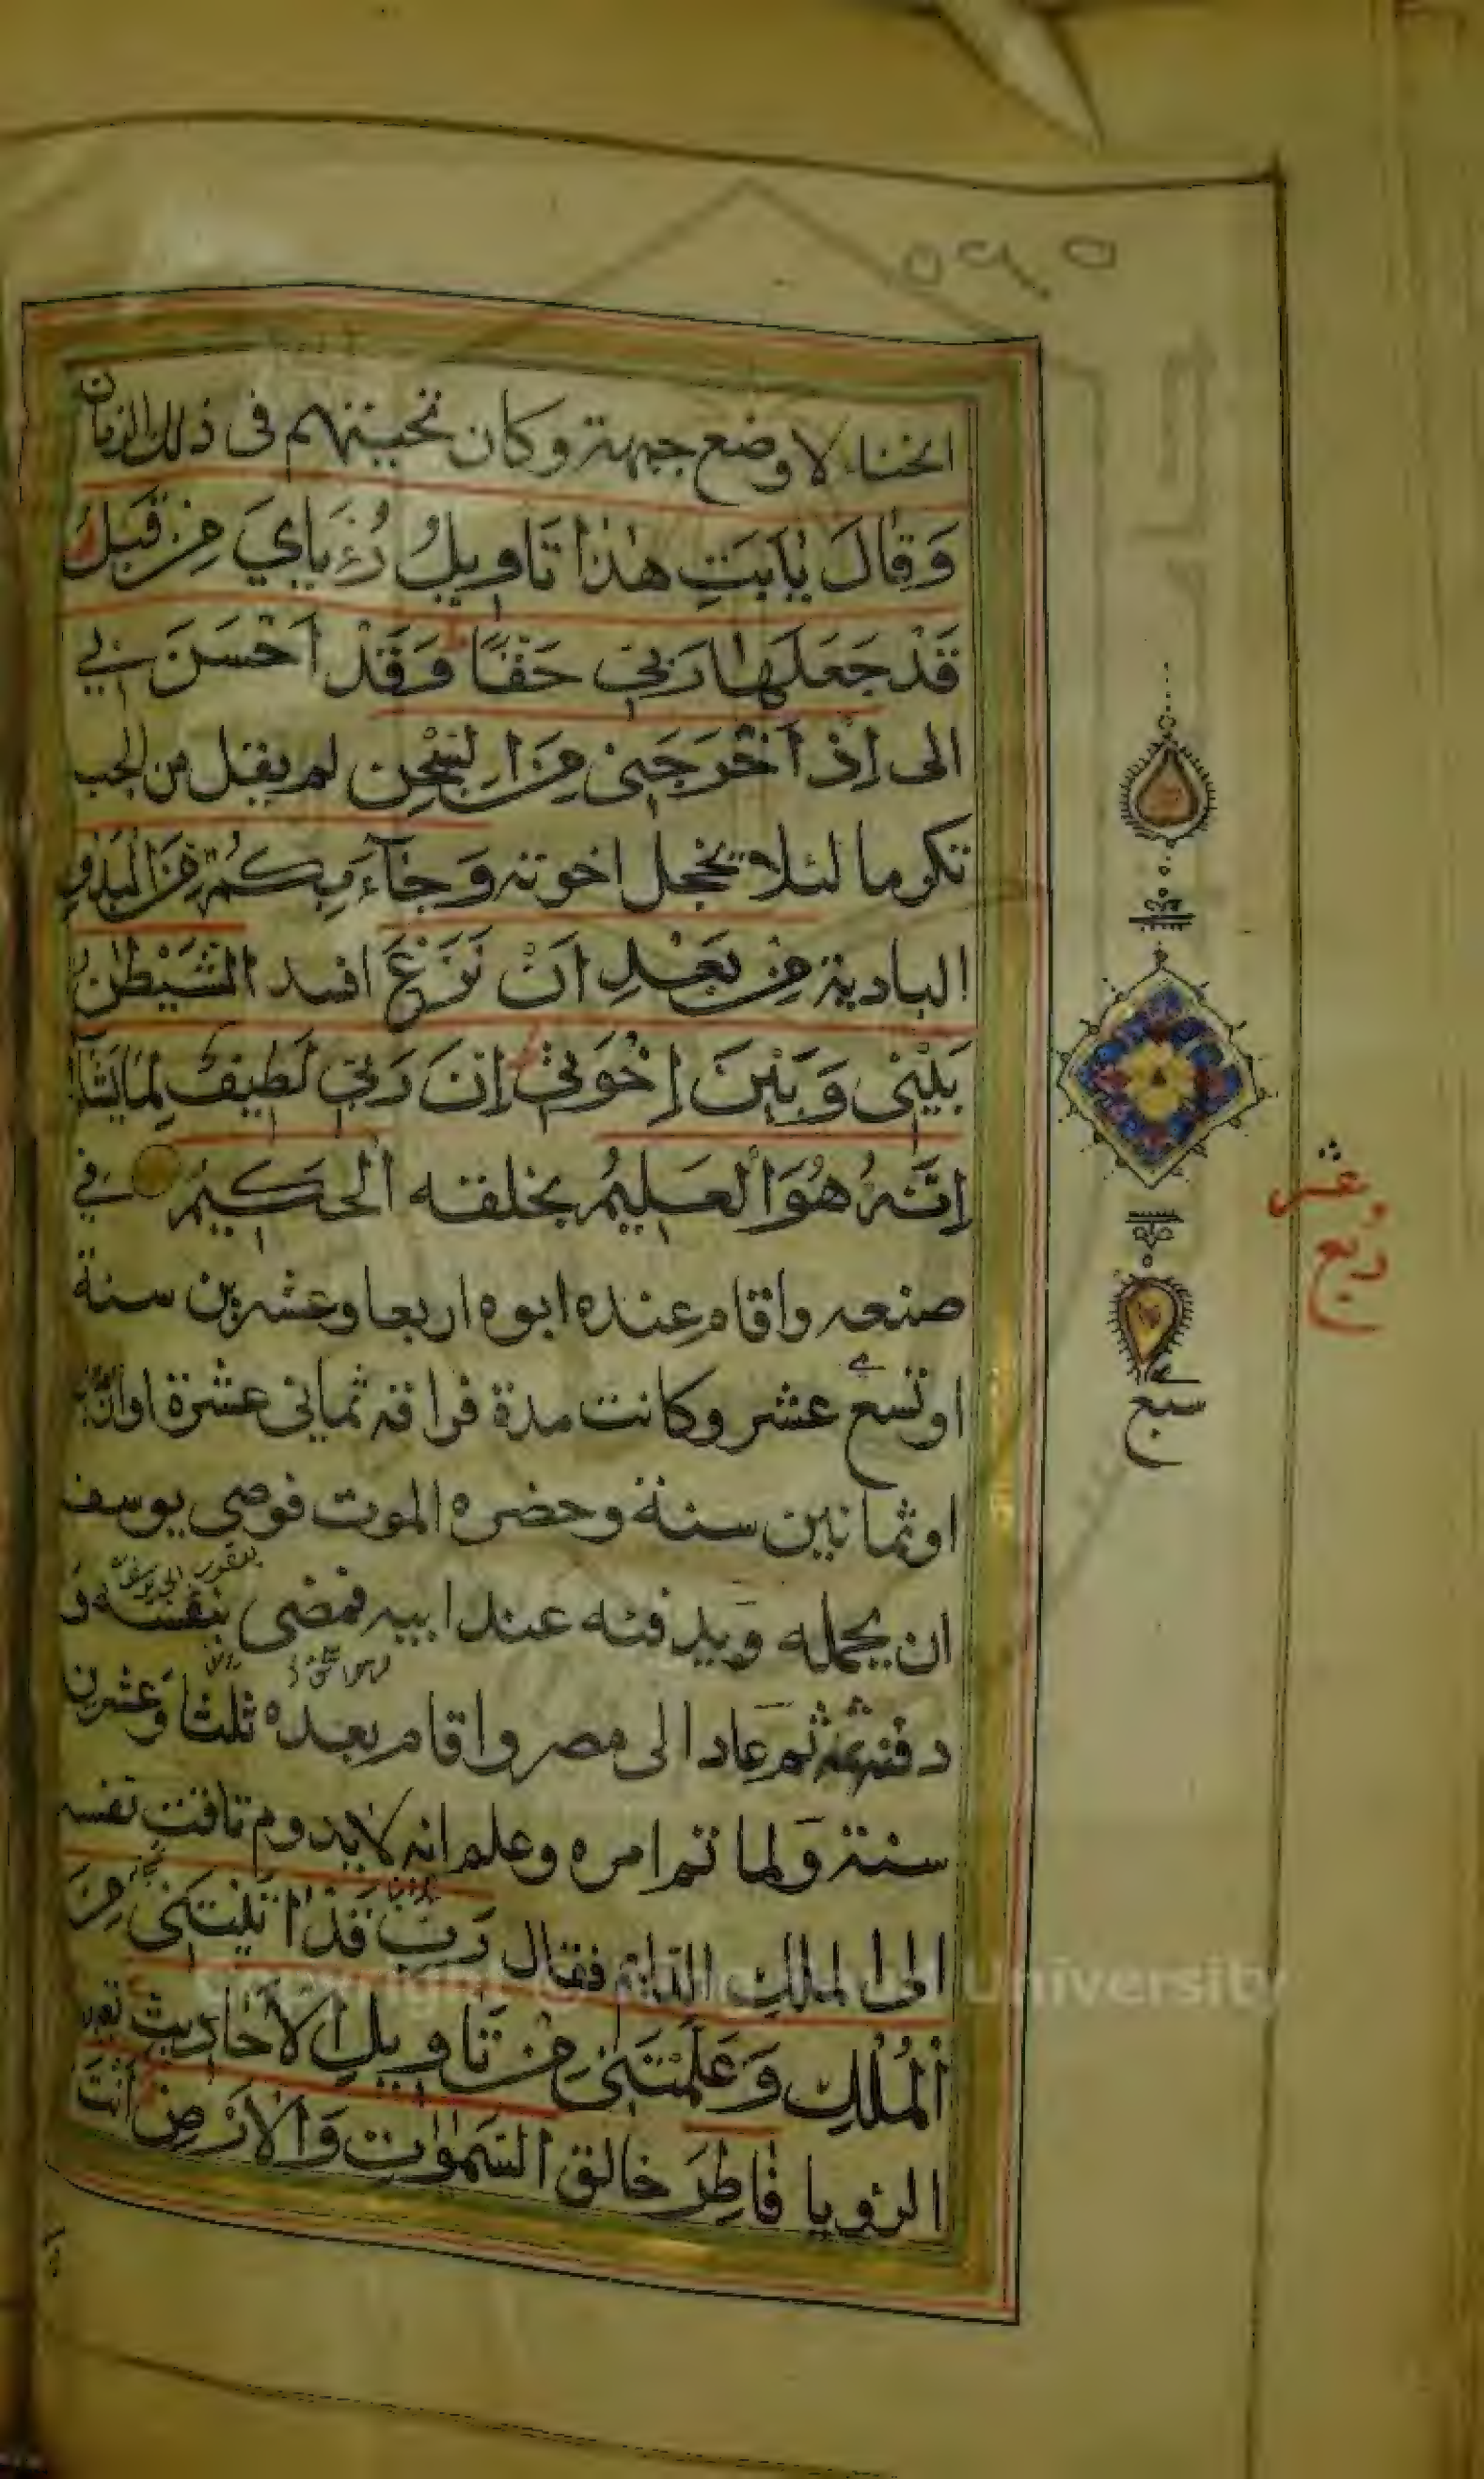 انحناء لا وضع جبهة وكان تحيتهم فى ذلك الزمان
وَقَالَ يٰاَبَتِ هٰذَا تَاْوِيلُ رُءْيَايَ مِنْ قَبْلُ
قَدْ جَعَلَهَا رَبِّي حَقًّا وَقَدْ اَحْسَنَ بِي
الى اِذْ اَخْرَجَنِى مِنَ السِّجْنِ لم يقل من الجب
تكرما لئلا تخجل اخوته وَجَآءَ بِكُمْ مِنَ الْبَدْوِ
البادية مِنْ بَعْدِ اَنْ نَزَغَ افسد الشَّيْطٰنُ
بَيْنِى وَبَيْنَ اِخْوَتِي اِنَّ رَبِّي لَطِيفٌ لِمَا يَشَآءُ
اِنَّهُ هُوَ الْعَلِيمُ بخلقه الْحَكِيمُ في
صنعه واقام عنده ابوه اربعا وعشرين سنة
او تسع عشر وكانت مدة فراقه ثمانى عشرة او
او ثمانين سنة وحضره الموت فوصى يوسف
ان يحمله ويدفنه عند ابيه فمضى بنفسه و
دفنه ثمه ثم عاد الى مصر واقام بعده ثلثا وعشرين
سنة وَلما تم امره وعلم انه لا يدوم تاقت نفسه
الى الملك الدائم فقال رَبِّ قَدْ اٰتَيْتَنِى مِنَ
الْمُلْكِ وَعَلَّمْتَنِى مِنْ تَاْوِيلِ الْاَحَادِيثِ تعبير
الرؤيا فَاطِرَ خالق السَّمٰوٰتِ وَالْاَرْضِ اَنْتَ
سبع
وعشر
ربع
Copyright © University